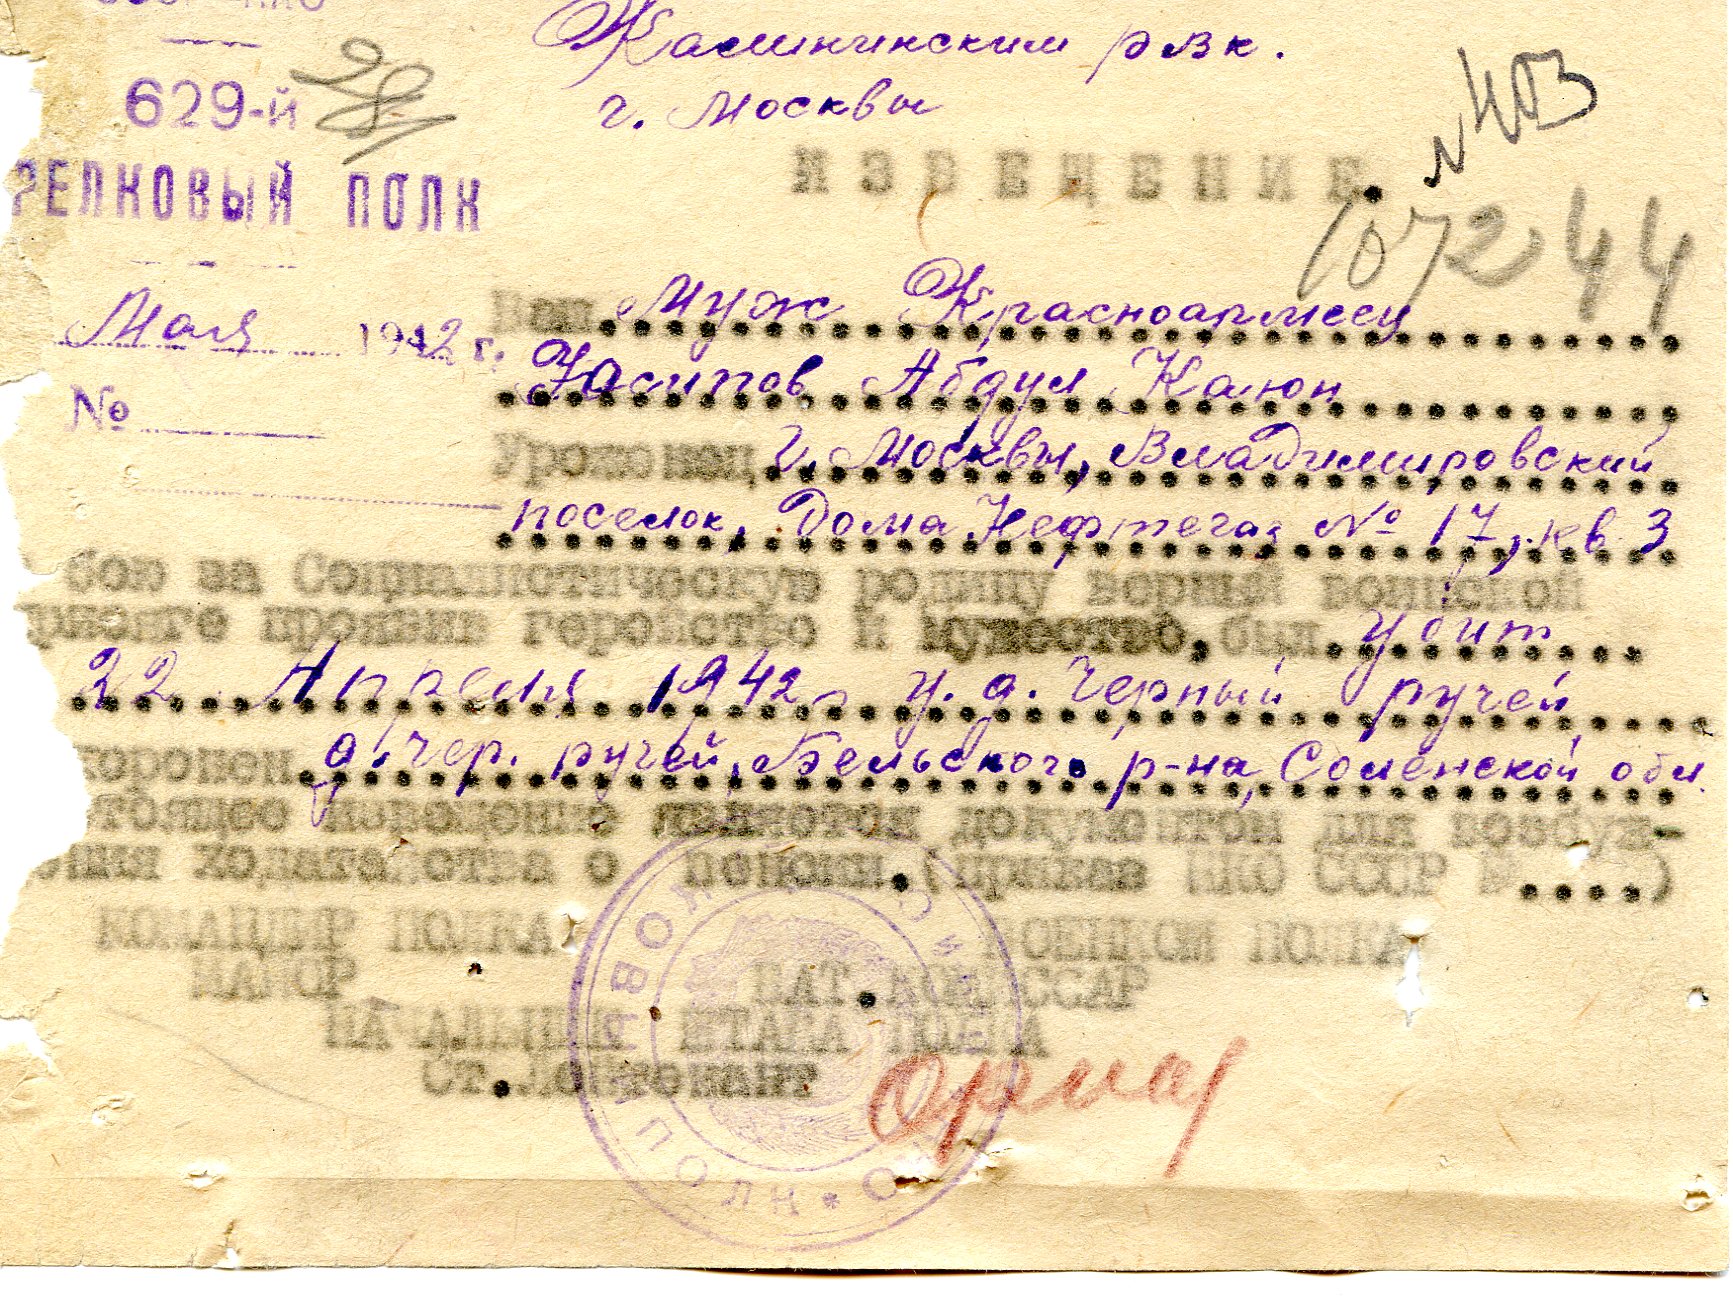 Калининским рвк.
629-й
г. Москвы
№ 403
РЕЛКОВЫЙ ПОЛК
ИЗВЕЩЕНИЕ.
107244
Мая 1942 г.
Ваш муж Красноармеец
№
Хасипов Абдул Каюн
Уроженец г. Москвы, Владимировский
поселок, Дома Нефтегаз № 17, кв 3
бою за Социалистическую родину верный воинской
присяге проявив геройство и мужество, был убит
22 Апреля 1942 г у. д. Черный ручей
хоронен д. Чер. ручей, Бельского р-на, Соленской обл.
стоящее извещение является документом для возбуж-
ения ходатайства о пенсии.(приказ НКО СССР №....)
КОМАНДИР ПОЛКА ВОЕНКОМ ПОЛКА
МАЙОР БАТ.КОМИССАР
НАЧАЛЬНИК ШТАБА ПОЛКА
Ст.Лейтенант